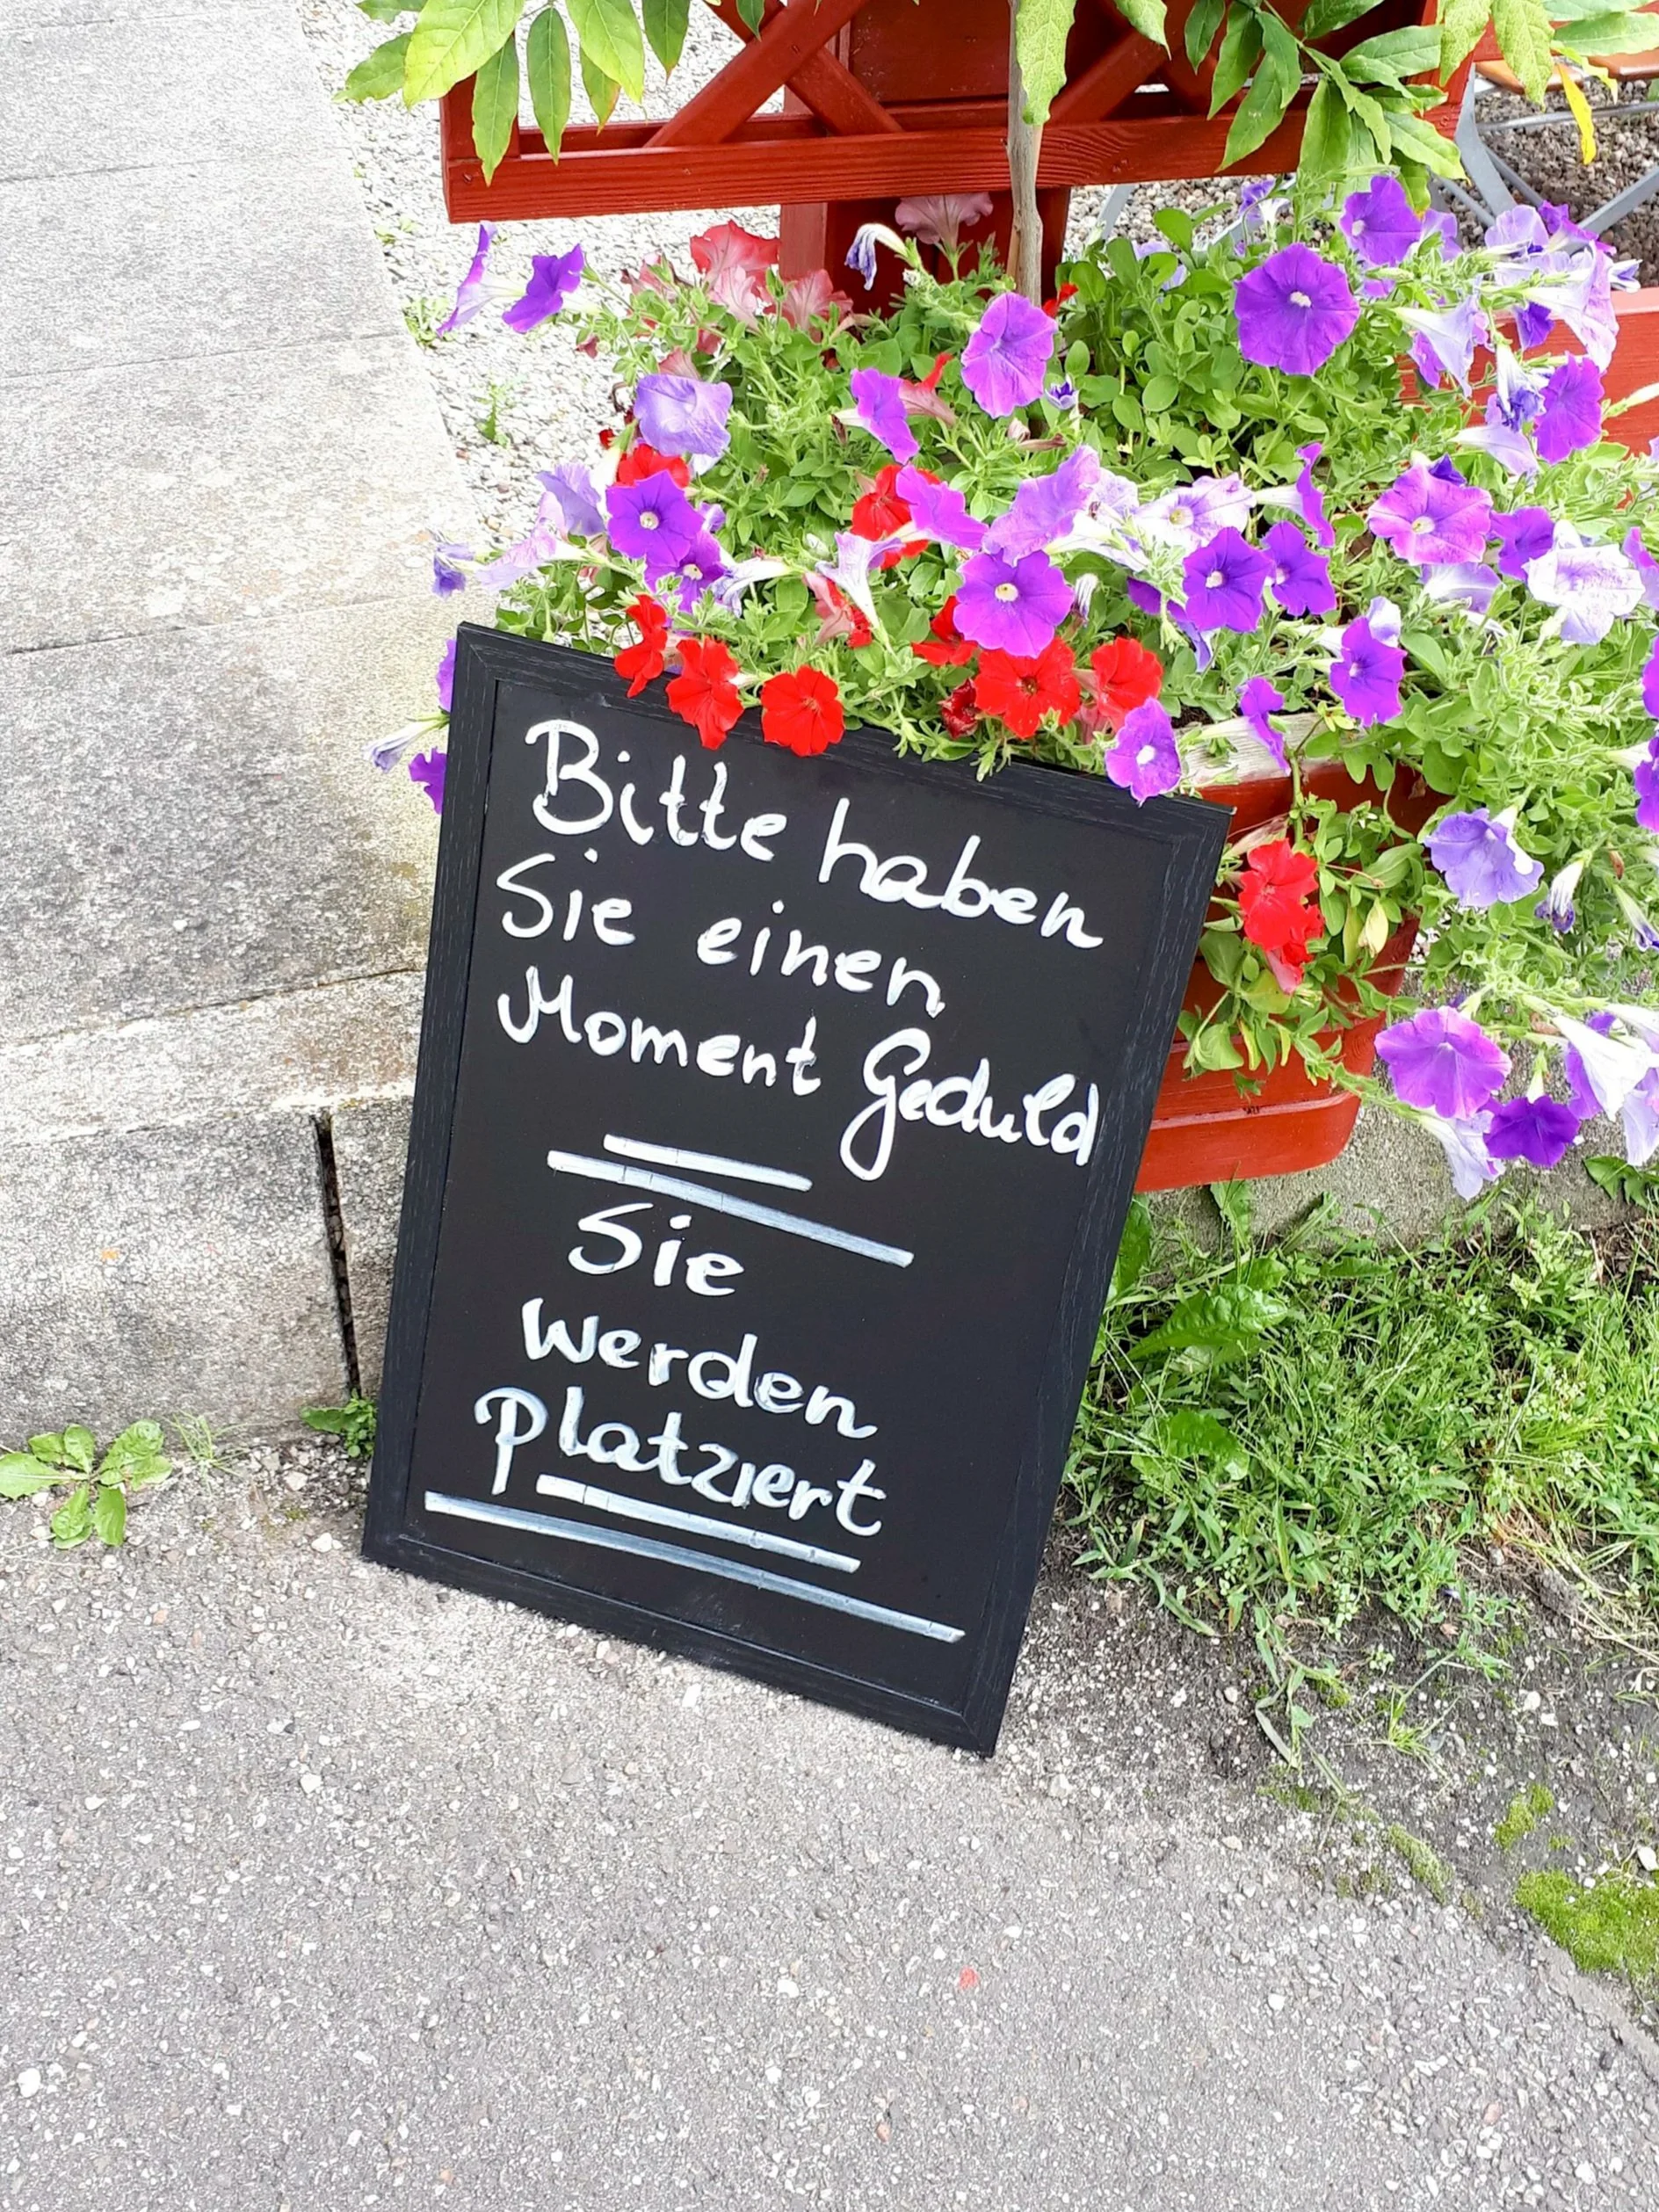 Bitte haben
Sie einen
Moment Geduld
Sie
werden
Platziert